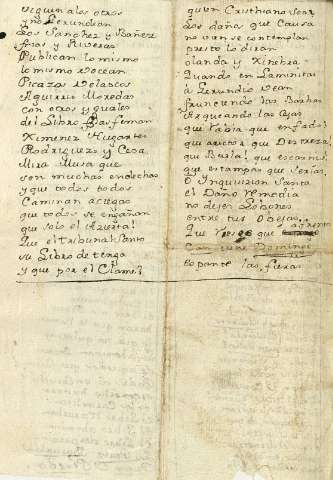 y no Gerundian
dos Sanchez y Ibañez
frias y Riveras
Publican lo mismo
lo mismo Vocean
Picazos Velascos
Aguirres Moredas
Con otros yguales
del Libro
Ximenez Hugartes
Rodriguez y Cesa
Mira Musa que
son muchas endechas
y que todos todos
Caminan aciegas
que todos se engañan
que solo el Acierta!
Que el tribunal Santo
su Libro detenga
y que por el Clame!
quen Cristhiano Sear
Los daños que Causa
no vien se contemplan
presto lo diran
olanda y Xinebra
Quando en Laminitas
a Gerundio Vean
frunciendo las Barbas
Arqueando las Cejas
que rabia que enfado!
que aretor que Destreza!
que Burla! que escarnio!
que estampas que Serias!
O Inquisicion Santa
el Daño remedia
no dejes Lobones
entre tus Ovejas
Que Vengo que
Can eres Dominos
espante las fieras